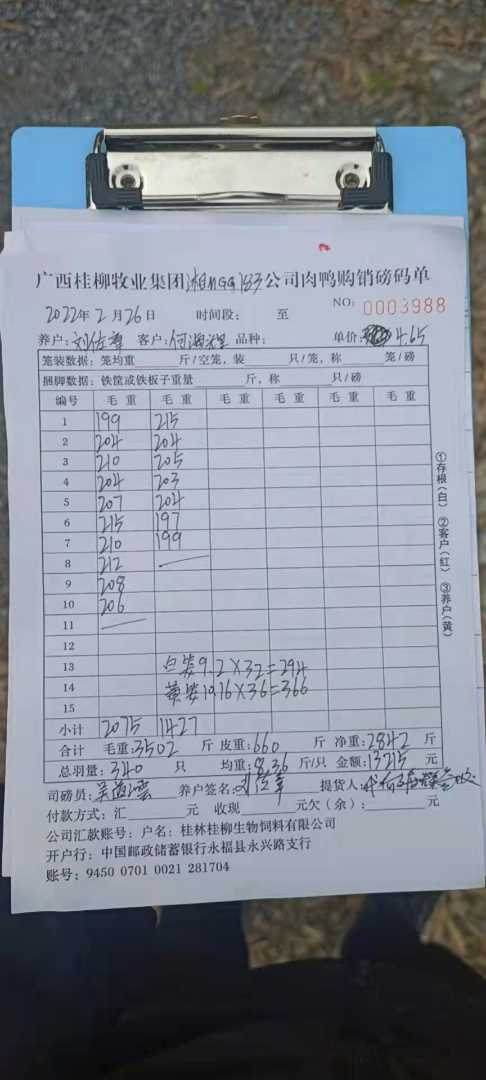 广西桂柳牧业集团湘Mgg183公司肉鸭购销磅码单
2022年2月26日 时间段: 至 NO: 0003988
养户:刘佐 客户:何海 品种: 单价: 4.65
笼装数据: 笼均重 斤/空笼, 装 只/笼, 称 笼/磅
捆脚数据: 铁筐或铁板子重量 斤, 称 只/磅
编号 毛重 毛重 毛重 毛重 毛重 毛重
1 199 215
2 204 204
3 210 205
4 204 203
5 207 204
6 215 197
7 210 199
8 212
9 208
10 206
11
12
13 白 9.2×32=294
14 黄 10.16×36=366
15
小计 2075 1427
合计 毛重:3502 斤 皮重:660 斤 净重:2842 斤
总羽量:340 只 均重:8.36 斤/只 金额:13215 元
司磅员:吴 养户签名: 提货人:
付款方式: 汇 元 收现 元欠(余): 元
公司汇款账号: 户名: 桂林桂柳生物饲料有限公司
开户行: 中国邮政储蓄银行永福县永兴路支行
账号: 9450 0701 0021 281704
①存根(白) ②客户(红) ③养户(黄)